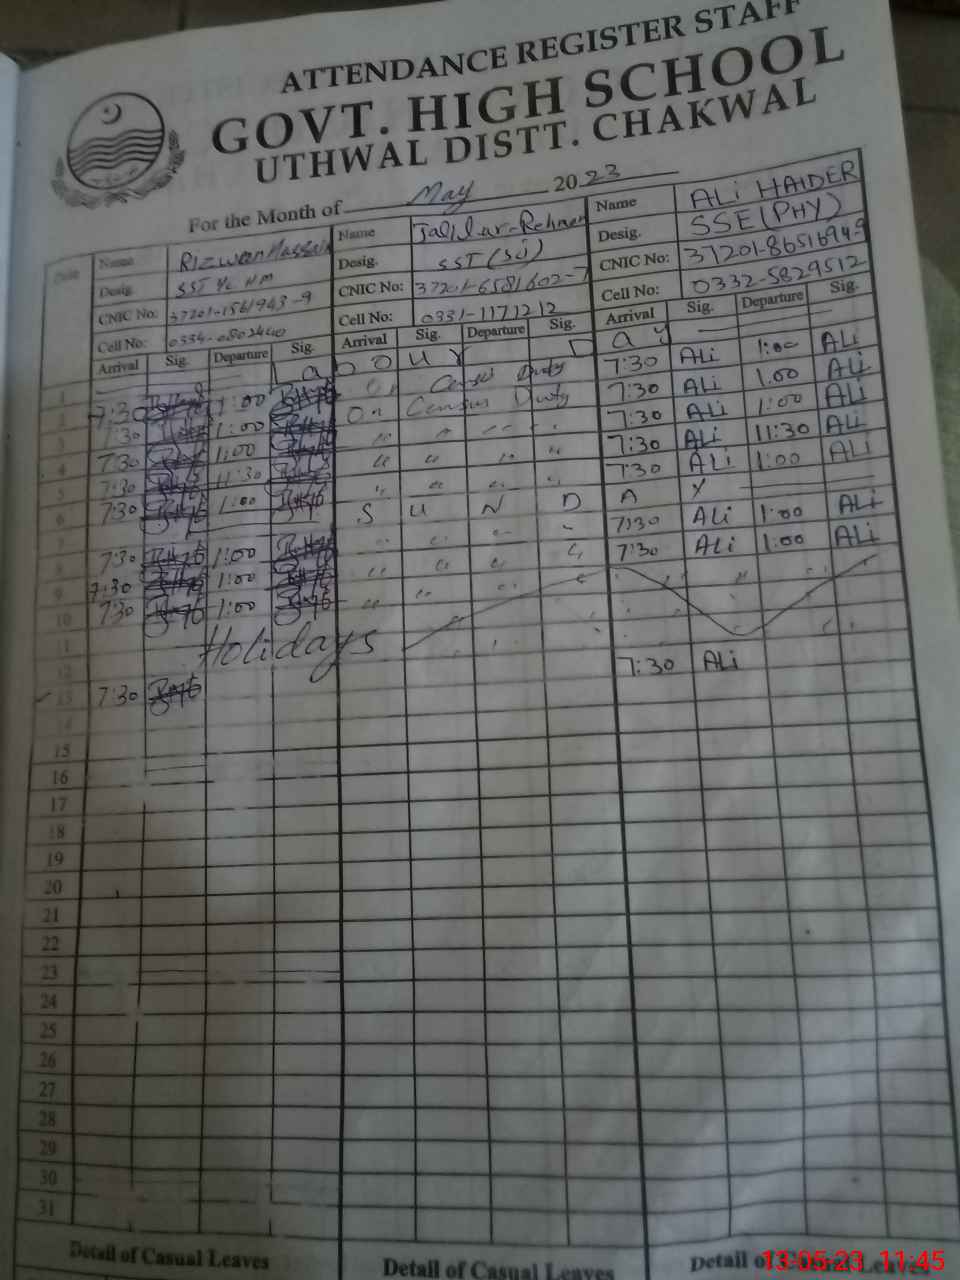 ATTENDANCE REGISTER STAFF
GOVT. HIGH SCHOOL
UTHWAL DISTT. CHAKWAL
For the Month of May 2023
Name Rizwan Hassain Name Name ALi HAIDER
Desig. SST I/c HM Desig. SST (Sci) Desig. SSE (PHY)
CNIC No: CNIC No: 37201-6581602-7 CNIC No: 37201-8651694-9
Cell No: 0334-0802440 Cell No: 0331-1171212 Cell No: 0332-5829512
Date Arrival Sig. Departure Sig. Arrival Sig. Departure Sig. Arrival Sig. Departure Sig.
1 L a b o u r D a y
2 7:30 1:00 On Census Duty 7:30 ALi 1:00 ALi
3 7:30 1:00 On Census Duty 7:30 ALi 1:00 ALi
4 7:30 1:00 " " " " 7:30 ALi 1:00 ALi
5 7:30 11:30 " " " " 7:30 ALi 11:30 ALi
6 7:30 1:00 " " " " 7:30 ALi 1:00 ALi
7 S U N D A Y
8 7:30 1:00 " " " " 7:30 ALi 1:00 ALi
9 7:30 1:00 " " " " 7:30 ALi 1:00 ALi
10 7:30 1:00 " " " "
11 Holidays
12
13 7:30 7:30 ALi
14
15
16
17
18
19
20
21
22
23
24
25
26
27
28
29
30
31
Detail of Casual Leaves Detail of Casual Leaves Detail of Casual Leaves
13-05-23 11:45